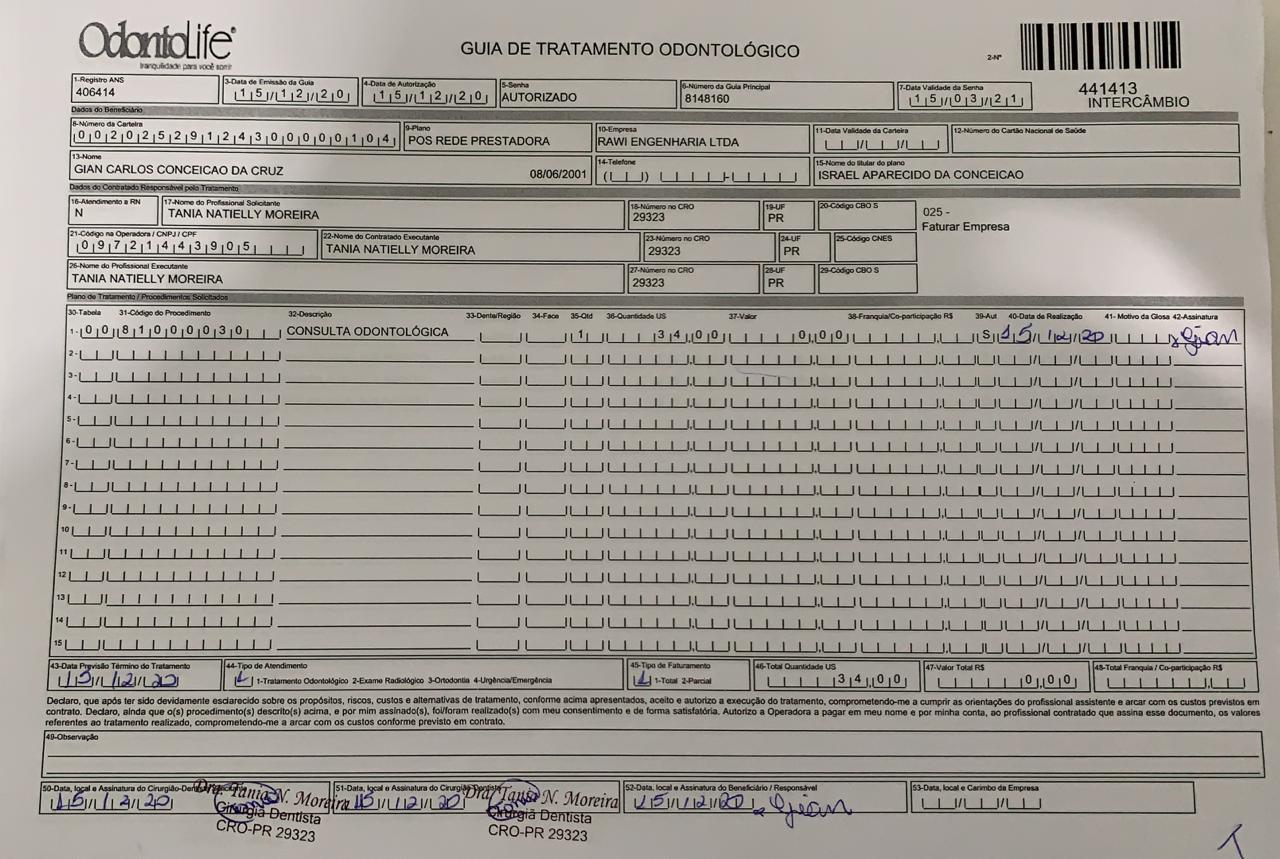 OdontoLife
tranquilidade para você sorrir
GUIA DE TRATAMENTO ODONTOLÓGICO
2-Nº
441413
INTERCÂMBIO
1-Registro ANS
406414
3-Data de Emissão da Guia
15/12/20
4-Data de Autorização
15/12/20
5-Senha
AUTORIZADO
6-Número da Guia Principal
8148160
7-Data Validade da Senha
15/03/21
Dados do Beneficiário
8-Número da Carteira
00202529124300000104
9-Plano
POS REDE PRESTADORA
10-Empresa
RAWI ENGENHARIA LTDA
11-Data Validade da Carteira
12-Número do Cartão Nacional de Saúde
13-Nome
GIAN CARLOS CONCEICAO DA CRUZ 08/06/2001
14-Telefone
15-Nome do titular do plano
ISRAEL APARECIDO DA CONCEICAO
Dados do Contratado Responsável pelo Tratamento
16-Atendimento a RN
N
17-Nome do Profissional Solicitante
TANIA NATIELLY MOREIRA
18-Número no CRO
29323
19-UF
PR
20-Código CBO S
025 -
Faturar Empresa
21-Código na Operadora / CNPJ / CPF
09721443905
22-Nome do Contratado Executante
TANIA NATIELLY MOREIRA
23-Número no CRO
29323
24-UF
PR
25-Código CNES
26-Nome do Profissional Executante
TANIA NATIELLY MOREIRA
27-Número no CRO
29323
28-UF
PR
29-Código CBO S
Plano de Tratamento / Procedimentos Solicitados
30-Tabela 31-Código do Procedimento 32-Descrição 33-Dente/Região 34-Face 35-Qtd 36-Quantidade US 37-Valor 38-Franquia/Co-participação R$ 39-Aut 40-Data de Realização 41- Motivo da Glosa 42-Assinatura
1- 00 81000030 CONSULTA ODONTOLÓGICA 1 34,00 0,00 S 15/12/20 Gian
2-
3-
4-
5-
6-
7-
8-
9-
10
11
12
13
14
15
43-Data Previsão Término do Tratamento
15/12/20
44-Tipo de Atendimento
1 1-Tratamento Odontológico 2-Exame Radiológico 3-Ortodontia 4-Urgência/Emergência
45-Tipo de Faturamento
1 1-Total 2-Parcial
46-Total Quantidade US
34,00
47-Valor Total R$
0,00
48-Total Franquia / Co-participação R$
Declaro, que após ter sido devidamente esclarecido sobre os propósitos, riscos, custos e alternativas de tratamento, conforme acima apresentados, aceito e autorizo a execução do tratamento, comprometendo-me a cumprir as orientações do profissional assistente e arcar com os custos previstos em
contrato. Declaro, ainda que o(s) procedimento(s) descrito(s) acima, e por mim assinado(s), foi/foram realizado(s) com meu consentimento e de forma satisfatória. Autorizo a Operadora a pagar em meu nome e por minha conta, ao profissional contratado que assina esse documento, os valores
referentes ao tratamento realizado, comprometendo-me a arcar com os custos conforme previsto em contrato.
49-Observação
50-Data, local e Assinatura do Cirurgião-Dentista
15/12/20
Dra. Tania N. Moreira
Cirurgiã Dentista
CRO-PR 29323
51-Data, local e Assinatura do Cirurgião Dentista
15/12/20
Dra. Tania N. Moreira
Cirurgiã Dentista
CRO-PR 29323
52-Data, local e Assinatura do Beneficiário / Responsável
15/12/20 Gian
53-Data, local e Carimbo da Empresa